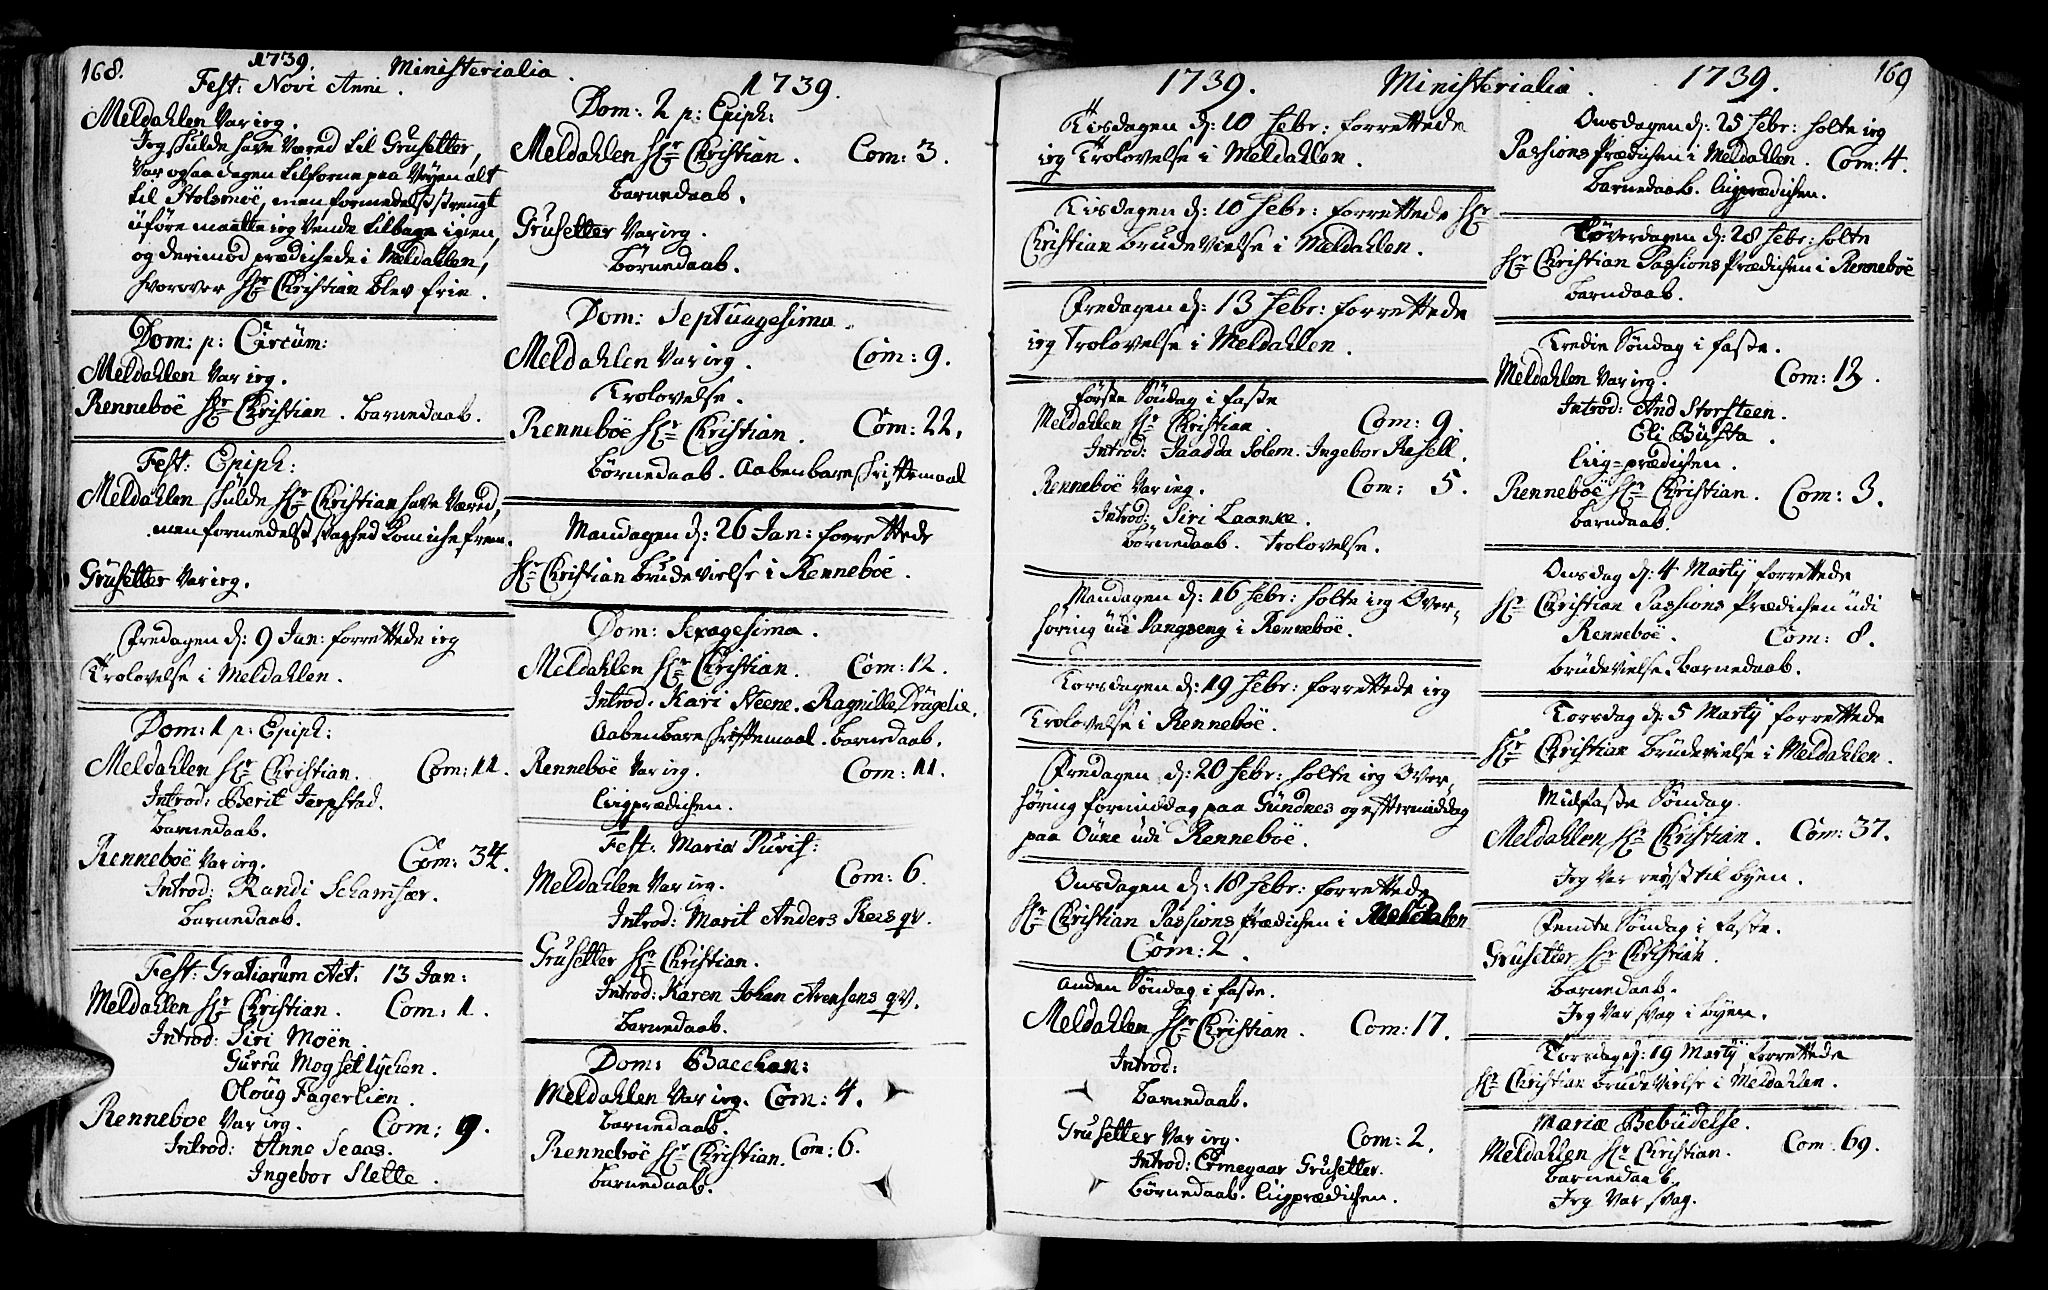 168.
1739.
Ministerialia.
1739.
Fest: Novi Anni.
Meldahlen Var ieg.
Jeg skulde have Væred til Grusetter,
Var ogsaa dagen tilforne paa Veyen alt
til Stolsmoë, men formedelst strengt
uføre maatte ieg Vende tilbage igien,
og derimod prædichede i Meldahlen,
hvorover Hr Christian blev frie.
Dom: p: Circum:
Meldahlen Var ieg.
Renneboë Hr Christian. barnedaab.
Fest: Epiph:
Meldahlen skulde Hr Christian have Væred,
men formedelst svaghed kom iche frem.
Grusetter Var ieg.
Fredagen d: 9 Jan: forrettede ieg
Trolovelse i Meldahlen.
Dom: 1 p: Epiph:
Meldahlen Hr Christian. Com: 11.
Introd: Berit Jerpstad.
barnedaab.
Renneboë Var ieg. Com: 34.
Introd: Randi Schamfær.
barnedaab.
Fest: Gratiarum Act: 13 Jan:
Meldahlen Hr Christian. Com: 1.
Introd: Siri Moën.
Gurru Mogsetlychen.
Oloug Fagerlien.
Renneboe Var ieg. Com: 9.
Introd: Anne Seaas.
Ingebor Slette.
Dom: 2 p: Epiph:
Meldahlen Hr Christian. Com: 3.
barnedaab.
Grusetter Var ieg.
børnedaab.
Dom: Septuagesima.
Meldahlen Var ieg. Com: 9.
Trolovelse.
Renneboë Hr Christian. Com: 22.
børnedaab. Aabenbare skriftemaal
Mandagen d: 26 Jan: forrettede
Hr Christian brudevielse i Renneboë.
Dom: Sexagesima.
Meldahlen Hr Christian. Com: 12.
Introd. Kari Steene. Ragnille Drugelie.
Aabenbare skriftemaal. barnedaab.
Renneboë Var ieg. Com: 11.
liigprædichen.
Fest: Mariæ Purif:
Meldahlen Var ieg. Com: 6.
Introd: Marit Anders Rees qv.
Grusetter Hr Christian.
Introd: Karen Johan Arensens qv.
barnedaab.
Dom: Bacchan:
Meldahlen Var ieg. Com: 4.
barnedaab.
Renneboë Hr Christian. Com: 6.
barnedaab.
1739.
Ministerialia.
1739.
169
Tisdagen d: 10 Febr: forrettede
ieg Trolovelse i Meldahlen.
Tisdagen d: 10 Febr: forrettede Hr
Christian brudevielse i Meldahlen.
Fredagen d: 13 Febr: forrettede
ieg Trolovelse i Meldahlen.
første Søndag i faste
Meldahlen Hr Christian. Com: 9.
Introd: Jaadda Solem. Ingebor Resell.
Renneboë Var ieg. Com: 5.
Introd: Siri Laanke.
børnedaab. Trolovelse.
Mandagen d: 16 Febr: holte ieg Over-
høring udi Vangseng i Renneboë.
Torsdagen d: 19 Febr: forrettede ieg
Trolovelse i Renneboë.
Fredagen d: 20 Febr: holte ieg Over-
høring formiddag paa Gundnes og eftermiddag
paa Oune udi Renneboë.
Onsdagen d: 18 Febr: forrettede
Hr Christian Passions prædichen i Meldalen
Com: 2.
anden Søndag i faste.
Meldahlen Hr Christian. Com: 17.
Introd:
barnedaab.
Grusetter Var ieg. Com: 2.
Introd: Ermegaar Grusetter.
børnedaab. liigprædichen.
Onsdagen d: 25 Febr: holte ieg
Passions prædichen i Meldahlen. Com: 4.
barnedaab. liigprædichen.
Løverdagen d: 28 Febr: holte
Hr Christian Passions prædichen i Renneboë
barndaab.
Tredie Søndag i faste.
Meldahlen Var ieg. Com: 12.
Introd: And Storsteen.
Eli Busta.
liig-prædichen.
Renneboë Hr Christian. Com: 3.
barndaab.
Onsdag d: 4 Martij forrettede
Hr Christian Passions Prædichen udi
Renneboë. Com: 8.
brudevielse. barnedaab.
Torsdag d: 5 Martij forrettede
Hr Christian brudevielse i Meldahlen.
Midfaste Søndag.
Meldahlen Hr Christian. Com: 37.
Jeg Var reyst til byen.
Femte Søndag i faste.
Grusetter Hr Christian.
barnedaab.
Jeg Var svag i byen.
Torsdag d: 19 Martij forrettede
Hr Christian brudevielse i Meldahlen.
Mariæ Bebudelse.
Meldahlen Hr Christian. Com: 69.
barnedaab.
Jeg Var svag.